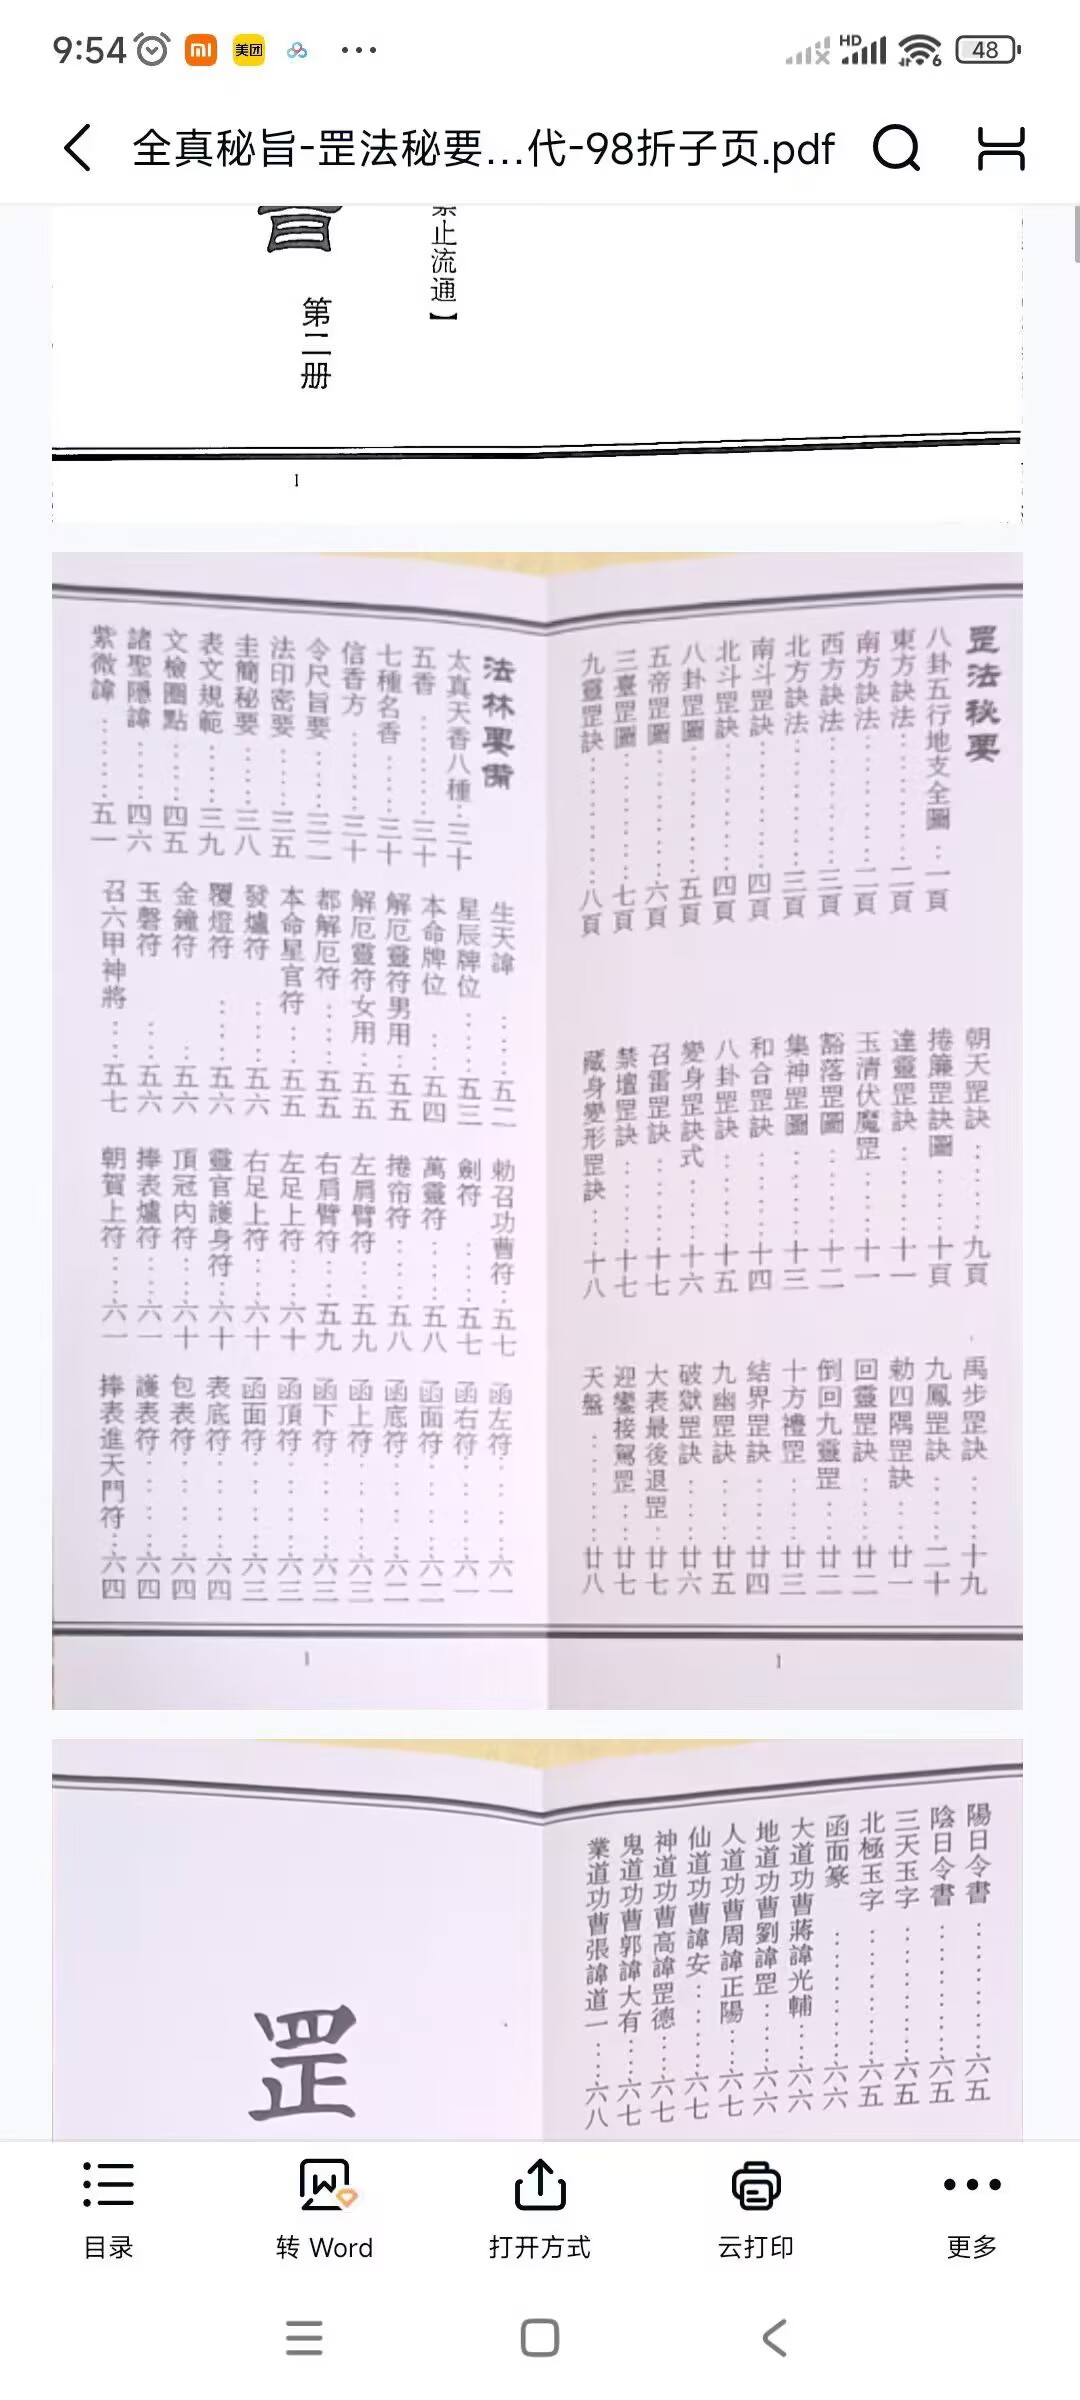 9:54
美团
HD
6
48
全真秘旨-罡法秘要...代-98折子页.pdf
禁止流通】
旨
第二册
1
罡法秘要
八卦五行地支全圖..一頁
東方訣法............二頁
南方訣法............二頁
西方訣法............三頁
北方訣法............三頁
南斗罡訣............四頁
北斗罡訣............四頁
八卦罡圖............五頁
五帝罡圖............六頁
三臺罡圖............七頁
九靈罡訣............八頁
朝天罡訣............九頁
捲簾罡訣圖........十頁
達靈罡訣............十一
玉清伏魔罡........十一
豁落罡圖............十二
集神罡圖............十三
和合罡訣............十四
八卦罡訣............十五
變身罡訣式........十六
召雷罡訣............十七
禁壇罡訣............十七
藏身變形罡訣....十八
禹步罡訣............十九
九鳳罡訣............二十
勅四隅罡訣........廿一
回靈罡訣............廿二
倒回九靈罡........廿二
十方禮罡............廿三
结界罡訣............廿四
九幽罡訣............廿五
破獄罡訣............廿六
大表最後退罡....廿七
迎鑾接駕罡........廿七
天盤..................廿八
1
法林要備
太真天香八種..三十
五香..................三十
七種名香..........三十
信香方..............三十
令尺旨要..........三二
法印密要..........三五
圭簡秘要..........三八
表文規範..........三九
文檢圈點..........四五
諸聖隱諱..........四六
紫微諱..............五一
生天諱..............五二
星辰牌位..........五三
本命牌位..........五四
解厄靈符男用..五五
解厄靈符女用..五五
都解厄符..........五五
本命星官符......五五
發爐符..............五六
覆燈符..............五六
金鐘符..............五六
玉磬符..............五六
召六甲神將......五七
勅召功曹符......五七
劍符..................五七
萬靈符..............五八
捲帘符..............五八
左肩臂符..........五九
右肩臂符..........五九
左足上符..........六十
右足上符..........六十
靈官護身符......六十
頂冠内符..........六十
捧表爐符..........六一
朝賀上符..........六一
函左符..............六一
函右符..............六一
函面符..............六二
函底符..............六二
函上符..............六三
函下符..............六三
函頂符..............六三
函面符..............六三
表底符..............六四
包表符..............六四
護表符..............六四
捧表進天門符..六四
1
陽日令書............六五
陰日令書............六五
三天玉字............六五
北極玉字............六五
函面篆..............六六
大道功曹蔣諱光輔....六六
地道功曹劉諱罡......六六
人道功曹周諱正陽....六七
仙道功曹諱安........六七
神道功曹高諱罡德....六七
鬼道功曹郭諱大有....六七
業道功曹張諱道一....六八
罡
目录
转 Word
打开方式
云打印
更多